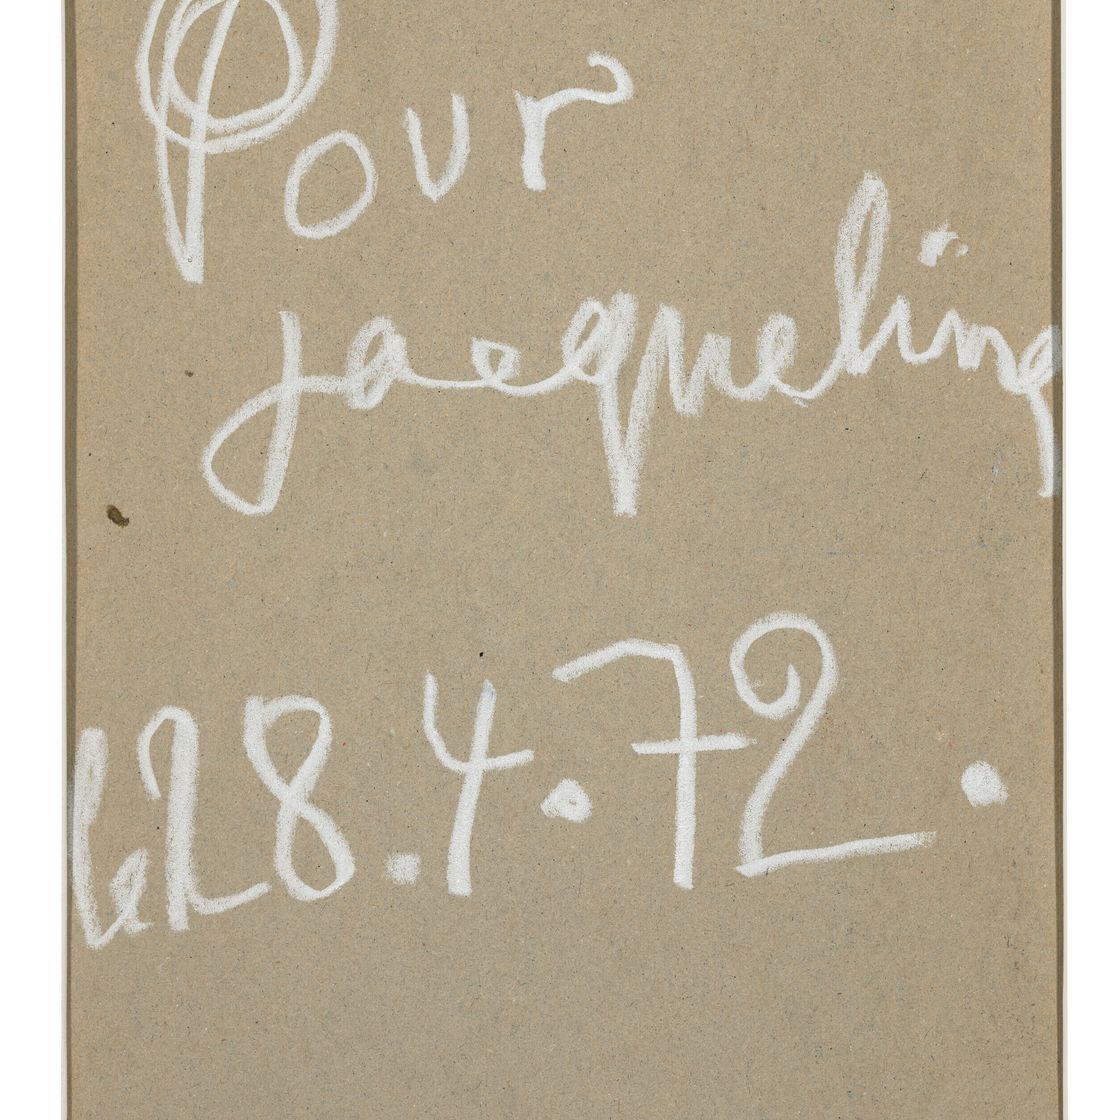 Pour
jacqueline
le 28.4.72.